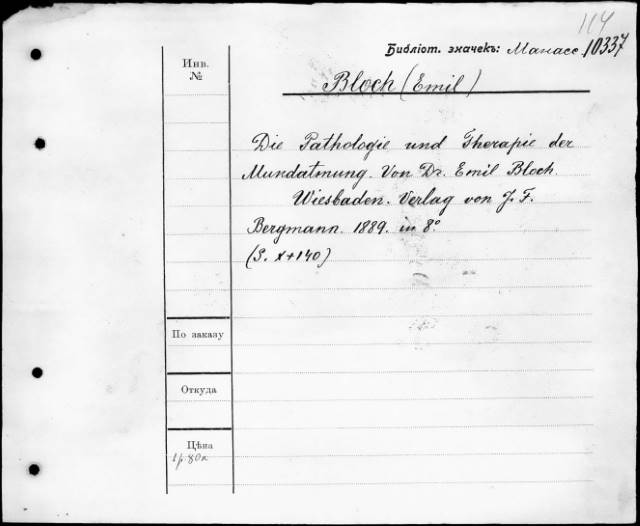 114
Библіот. значекъ: Манасс. 10337
Инв.
№
Bloch (Emil)
Die Pathologie und Therapie der
Mundatmung. Von Dr. Emil Bloch.
Wiesbaden. Verlag von J. F.
Bergmann. 1889. in 8°
(S. X+140)
По заказу
Откуда
Цѣна
1р. 80к